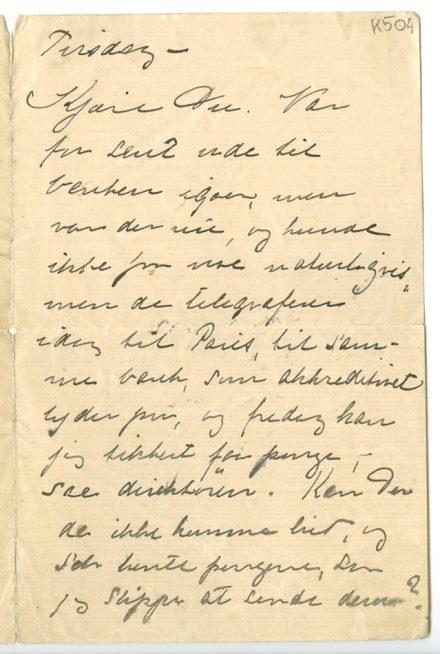 K504
Tirsdag –
Kjære Du. Var
for sent ude til
banken igaer, men
var der nu, og kunde
ikke faa noe naturligvis,
men de telegraferer
idag til Paris, til sam-
me bank, som akkreditivet
lyder paa, og fredag kan
jeg sikkert faa penge, –
sae direktören. Kan Du
da ikke komme hid, og
selv hente pengene, saa
jeg slipper at sende dem?